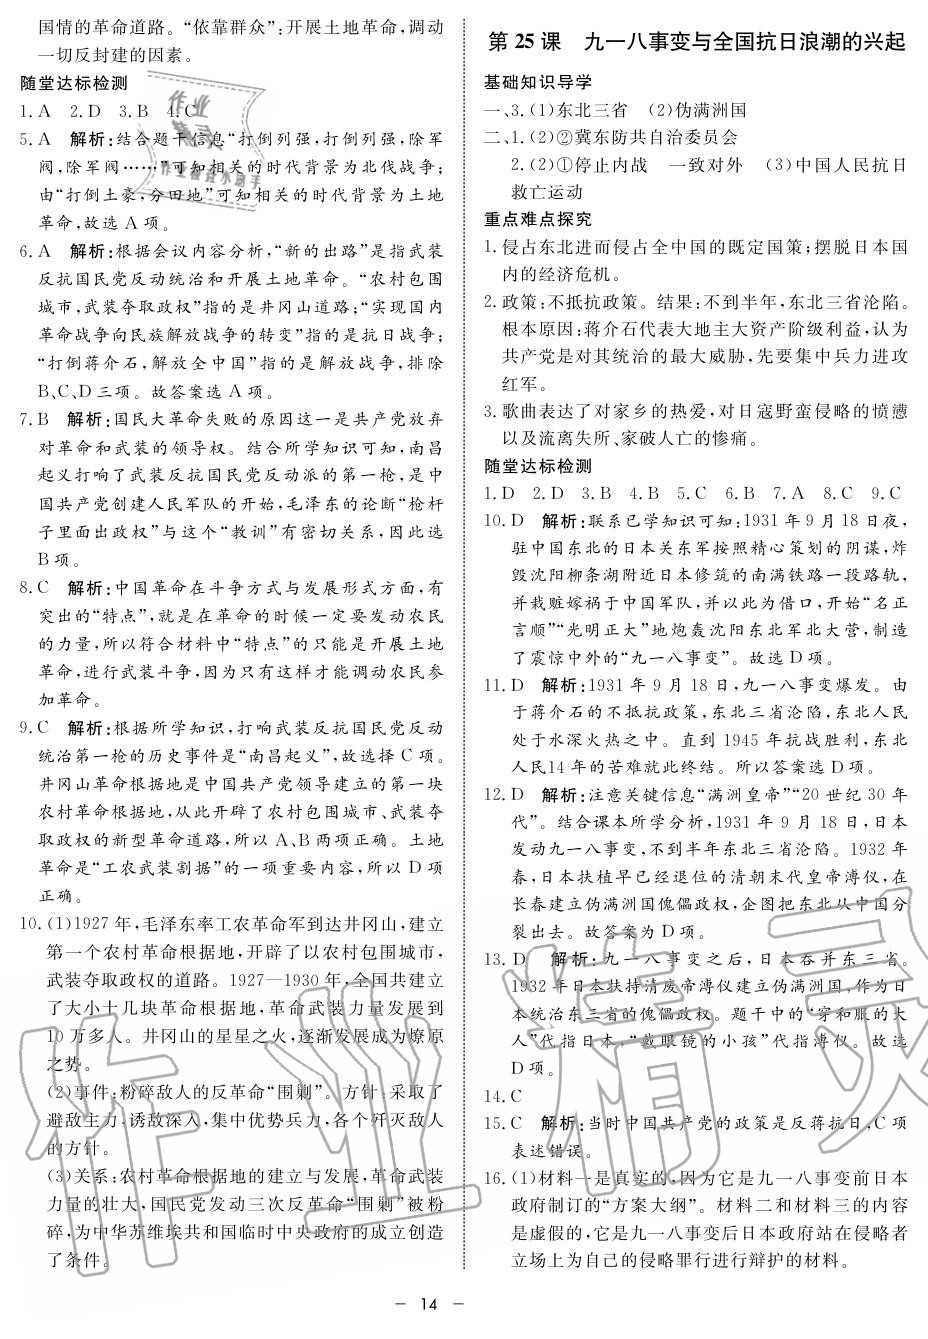 国情的革命道路。“依靠群众”:开展土地革命,调动
一切反封建的因素。
随堂达标检测
1. A 2. D 3. B 4. C
5. A 解析:结合题干信息“打倒列强,打倒列强,除军
阀,除军阀……”可知相关的时代背景为北伐战争;
由“打倒土豪,分田地”可知相关的时代背景为土地
革命,故选 A 项。
6. A 解析:根据会议内容分析,“新的出路”是指武装
反抗国民党反动统治和开展土地革命。“农村包围
城市,武装夺取政权”指的是井冈山道路;“实现国内
革命战争向民族解放战争的转变”指的是抗日战争;
“打倒蒋介石,解放全中国”指的是解放战争,排除
B、C、D 三项。故答案选 A 项。
7. B 解析:国民大革命失败的原因这一是共产党放弃
对革命和武装的领导权。结合所学知识可知,南昌
起义打响了武装反抗国民党反动派的第一枪,是中
国共产党创建人民军队的开始,毛泽东的论断“枪杆
子里面出政权”与这个“教训”有密切关系,因此选
B 项。
8. C 解析:中国革命在斗争方式与发展形式方面,有
突出的“特点”,就是在革命的时候一定要发动农民
的力量,所以符合材料中“特点”的只能是开展土地
革命,进行武装斗争,因为只有这样才能调动农民参
加革命。
9. C 解析:根据所学知识,打响武装反抗国民党反动
统治第一枪的历史事件是“南昌起义”,故选择 C 项。
井冈山革命根据地是中国共产党领导建立的第一块
农村革命根据地,从此开辟了农村包围城市、武装夺
取政权的新型革命道路,所以 A、B 两项正确。土地
革命是“工农武装割据”的一项重要内容,所以 D 项
正确。
10. (1)1927 年,毛泽东率工农革命军到达井冈山,建立
第一个农村革命根据地,开辟了以农村包围城市,
武装夺取政权的道路。1927—1930 年,全国共建立
了大小十几块革命根据地,革命武装力量发展到
10 万多人。井冈山的星星之火,逐渐发展成为燎原
之势。
(2)事件:粉碎敌人的反革命“围剿”。方针:采取了
避敌主力,诱敌深入,集中优势兵力,各个歼灭敌人
的方针。
(3)关系:农村革命根据地的建立与发展,革命武装
力量的壮大,国民党发动三次反革命“围剿”被粉
碎,为中华苏维埃共和国临时中央政府的成立创造
了条件。
第 25 课 九一八事变与全国抗日浪潮的兴起
基础知识导学
一、3. (1)东北三省 (2)伪满洲国
二、1. (2)②冀东防共自治委员会
2. (2)①停止内战 一致对外 (3)中国人民抗日
救亡运动
重点难点探究
1. 侵占东北进而侵占全中国的既定国策;摆脱日本国
内的经济危机。
2. 政策:不抵抗政策。结果:不到半年,东北三省沦陷。
根本原因:蒋介石代表大地主大资产阶级利益,认为
共产党是对其统治的最大威胁,先要集中兵力进攻
红军。
3. 歌曲表达了对家乡的热爱,对日寇野蛮侵略的愤懑
以及流离失所、家破人亡的惨痛。
随堂达标检测
1. D 2. D 3. B 4. B 5. C 6. B 7. A 8. C 9. C
10. D 解析:联系已学知识可知:1931 年 9 月 18 日夜,
驻中国东北的日本关东军按照精心策划的阴谋,炸
毁沈阳柳条湖附近日本修筑的南满铁路一段路轨,
并栽赃嫁祸于中国军队,并以此为借口,开始“名正
言顺”“光明正大”地炮轰沈阳东北军北大营,制造
了震惊中外的“九一八事变”。故选 D 项。
11. D 解析:1931 年 9 月 18 日,九一八事变爆发。由
于蒋介石的不抵抗政策,东北三省沦陷,东北人民
处于水深火热之中。直到 1945 年抗战胜利,东北
人民14 年的苦难就此终结。所以答案选 D 项。
12. D 解析:注意关键信息“满洲皇帝”“20 世纪 30 年
代”。结合课本所学分析,1931 年 9 月 18 日,日本
发动九一八事变,不到半年东北三省沦陷。1932 年
春,日本扶植早已经退位的清朝末代皇帝溥仪,在
长春建立伪满洲国傀儡政权,企图把东北从中国分
裂出去。故答案为 D 项。
13. D 解析:九一八事变之后,日本吞并东三省。
1932 年日本扶持清废帝溥仪建立伪满洲国,作为日
本统治东三省的傀儡政权。题干中的“穿和服的大
人”代指日本,“戴眼镜的小孩”代指溥仪。故选
D 项。
14. C
15. C 解析:当时中国共产党的政策是反蒋抗日,C 项
表述错误。
16. (1)材料一是真实的,因为它是九一八事变前日本
政府制订的“方案大纲”。材料二和材料三的内容
是虚假的,它是九一八事变后日本政府站在侵略者
立场上为自己的侵略罪行进行辩护的材料。
– 14 –
作业精灵